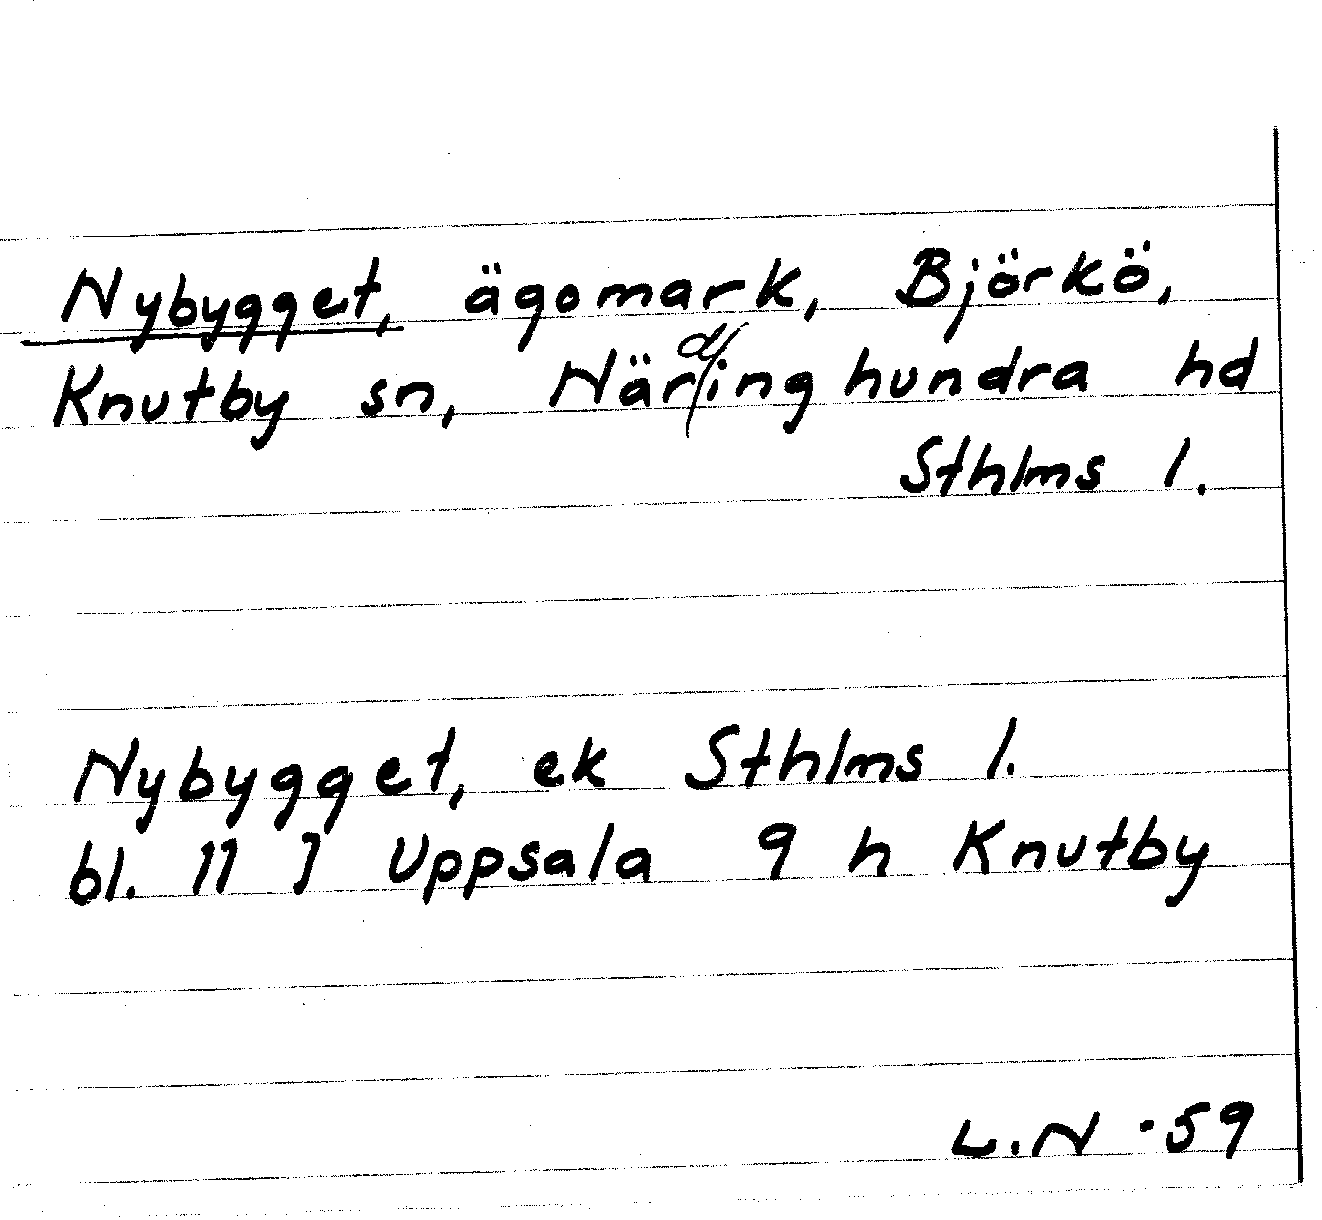 Nybygget, ägomark, Björkö,
Knutby sn, Närdinghundra hd
Sthlms l.
Nybygget, ek Sthlms l.
bl. 11 I Uppsala 9 h Knutby
L.N -59